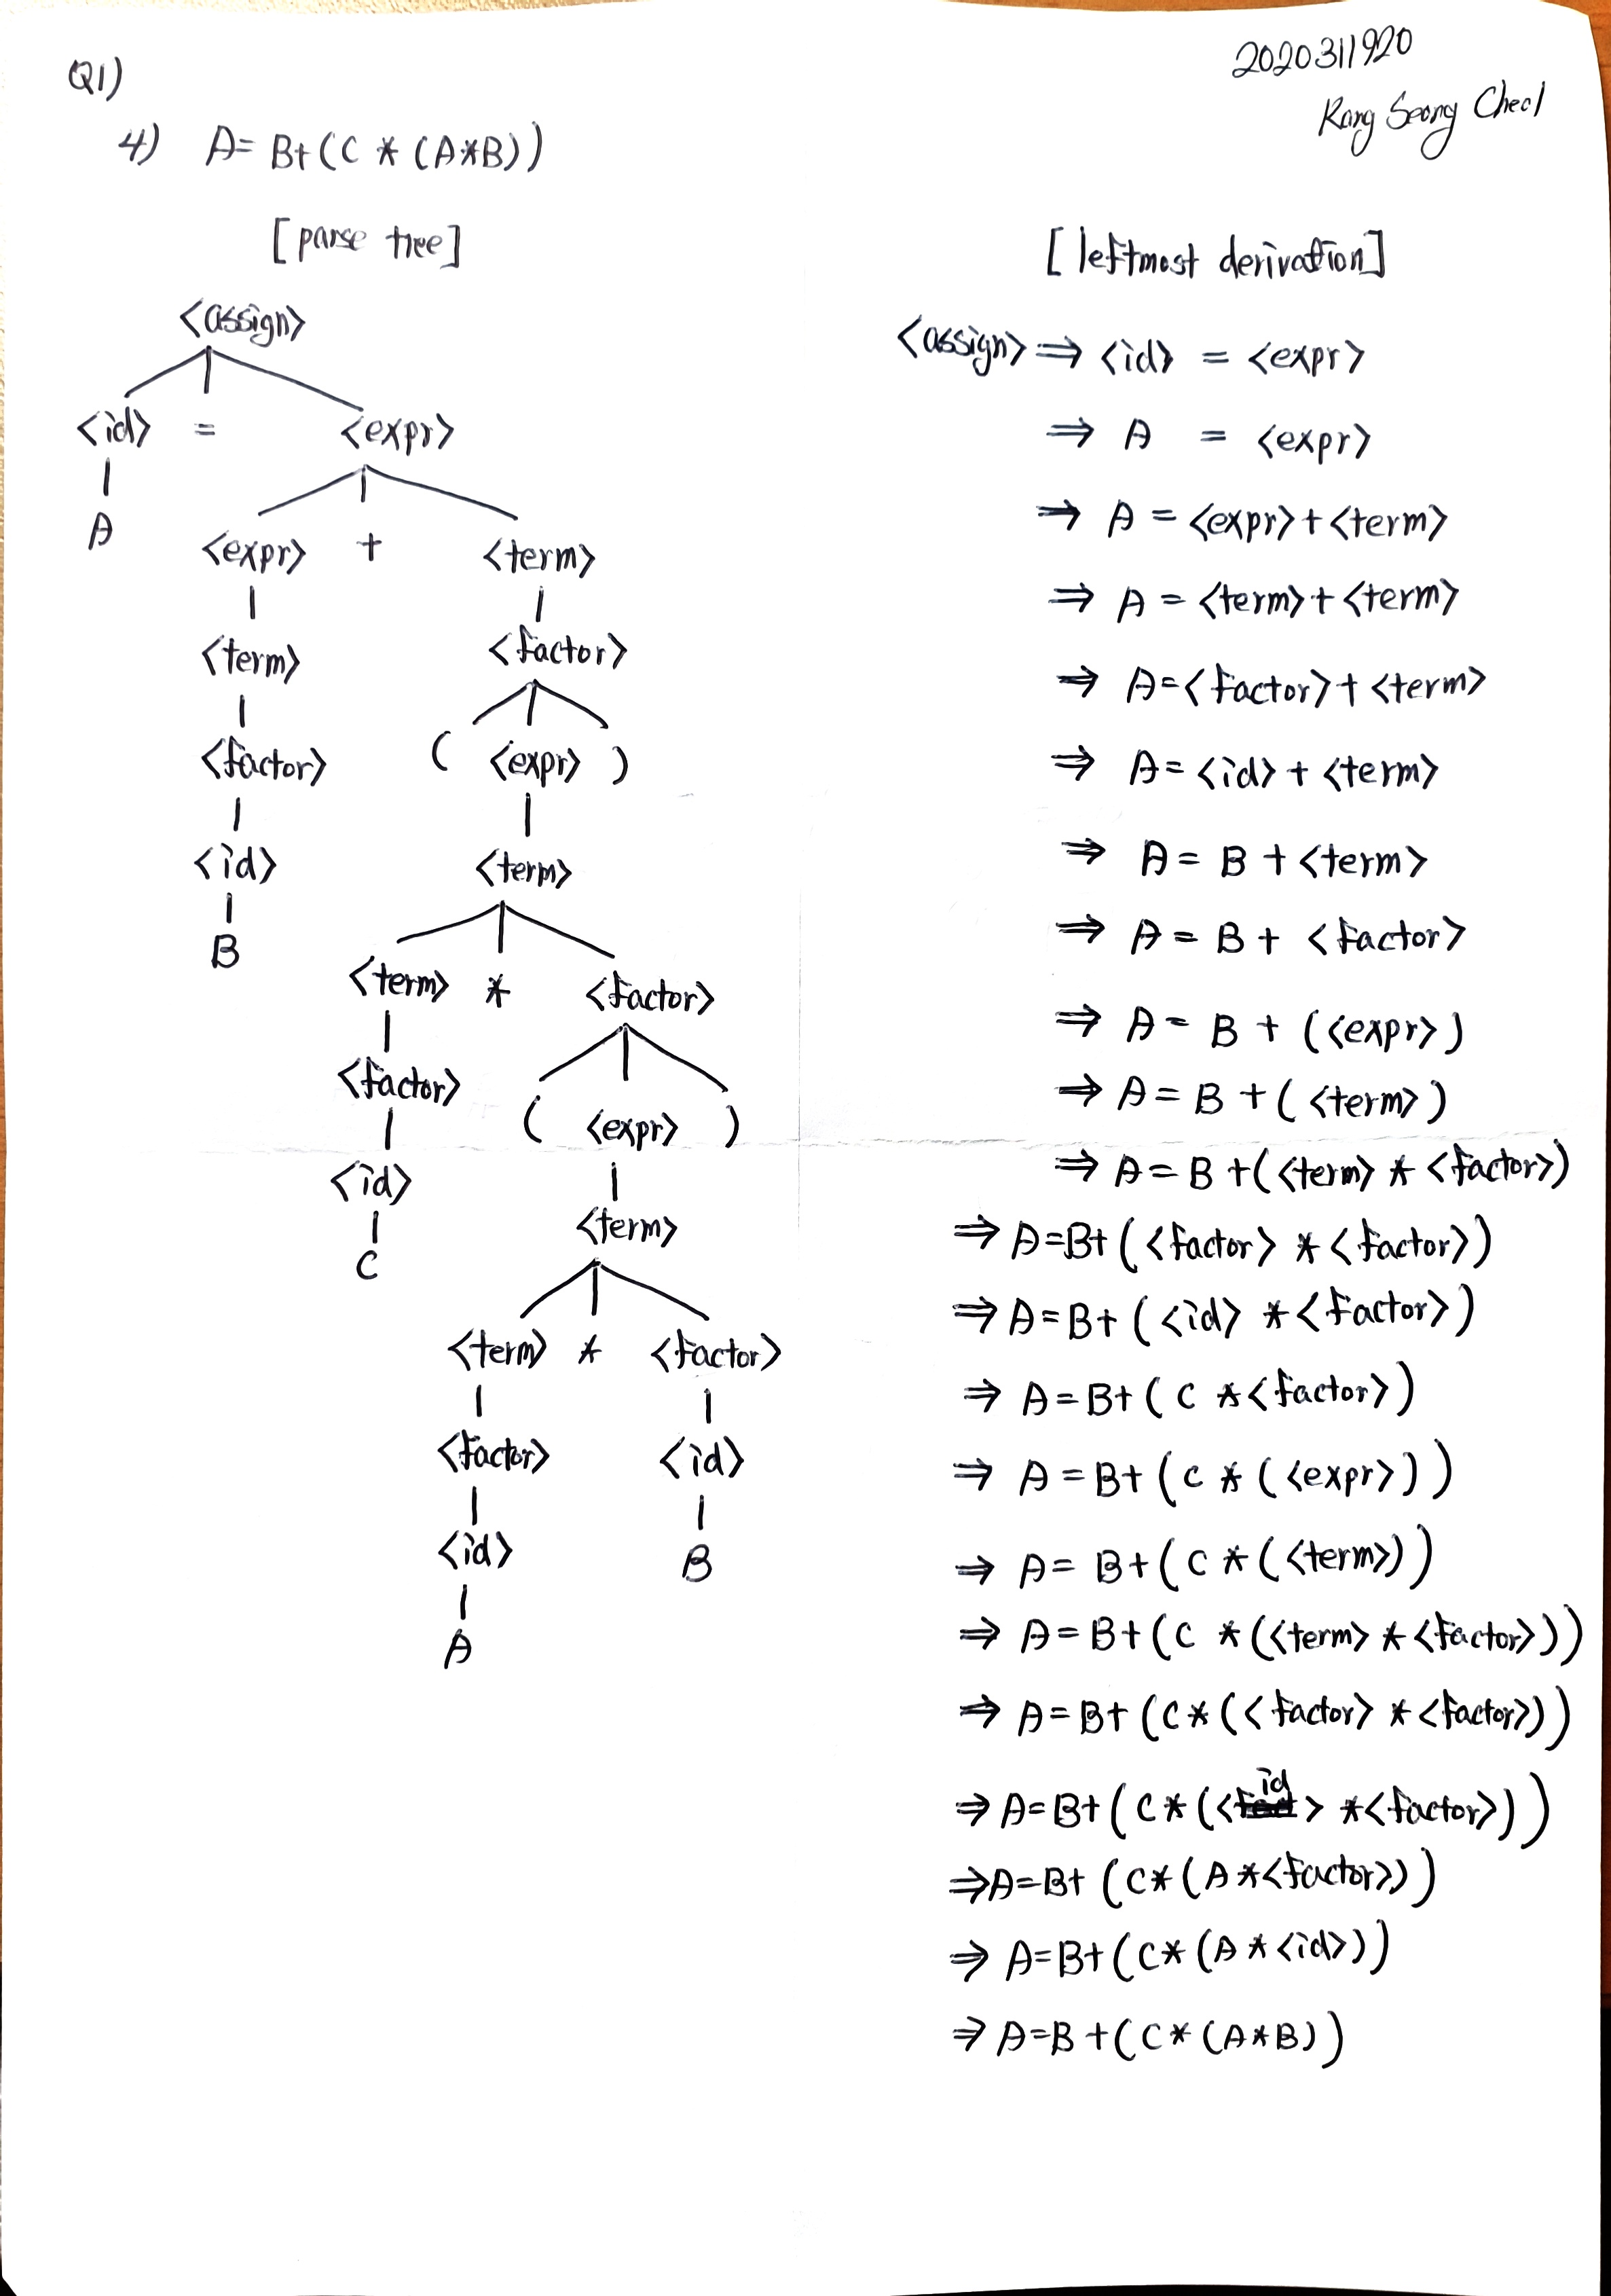 Q1)
2020311920
Kang Seong Cheol
4) A= B+(C * (A*B))
[parse tree]
<assign>
<id> = <expr>
A
<expr> + <term>
<term> <factor>
<factor> ( <expr> )
<id> <term>
B
<term> * <factor>
<factor> ( <expr> )
<id> <term>
C
<term> * <factor>
<factor> <id>
<id> B
A
[leftmost derivation]
<assign> ⇒ <id> = <expr>
⇒ A = <expr>
⇒ A = <expr>+<term>
⇒ A = <term>+<term>
⇒ A=<factor>+<term>
⇒ A=<id>+<term>
⇒ A= B +<term>
⇒ A = B + <factor>
⇒ A= B + (<expr>)
⇒ A= B +(<term>)
⇒ A= B +(<term> * <factor>)
⇒ A=B+(<factor> *<factor>)
⇒ A=B+(<id> *<factor>)
⇒ A=B+(C *<factor>)
⇒ A=B+(C *(<expr>))
⇒ A= B+(C *(<term>))
⇒ A= B+(C *(<term> *<factor>))
⇒ A=B+(C*(<factor> *<factor>))
⇒ A=B+(C*(<id> *<factor>))
⇒A=B+(C*(A*<factor>))
⇒ A=B+(C*(A*<id>))
⇒ A=B+(C*(A*B))